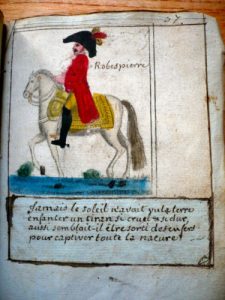 57.
Robespierre
Jamais le soleil n'avait vu la terre
enfanter un tiran si cruel & si dur,
aussi semblait-il être sorti des enfers
pour captiver toute la nature